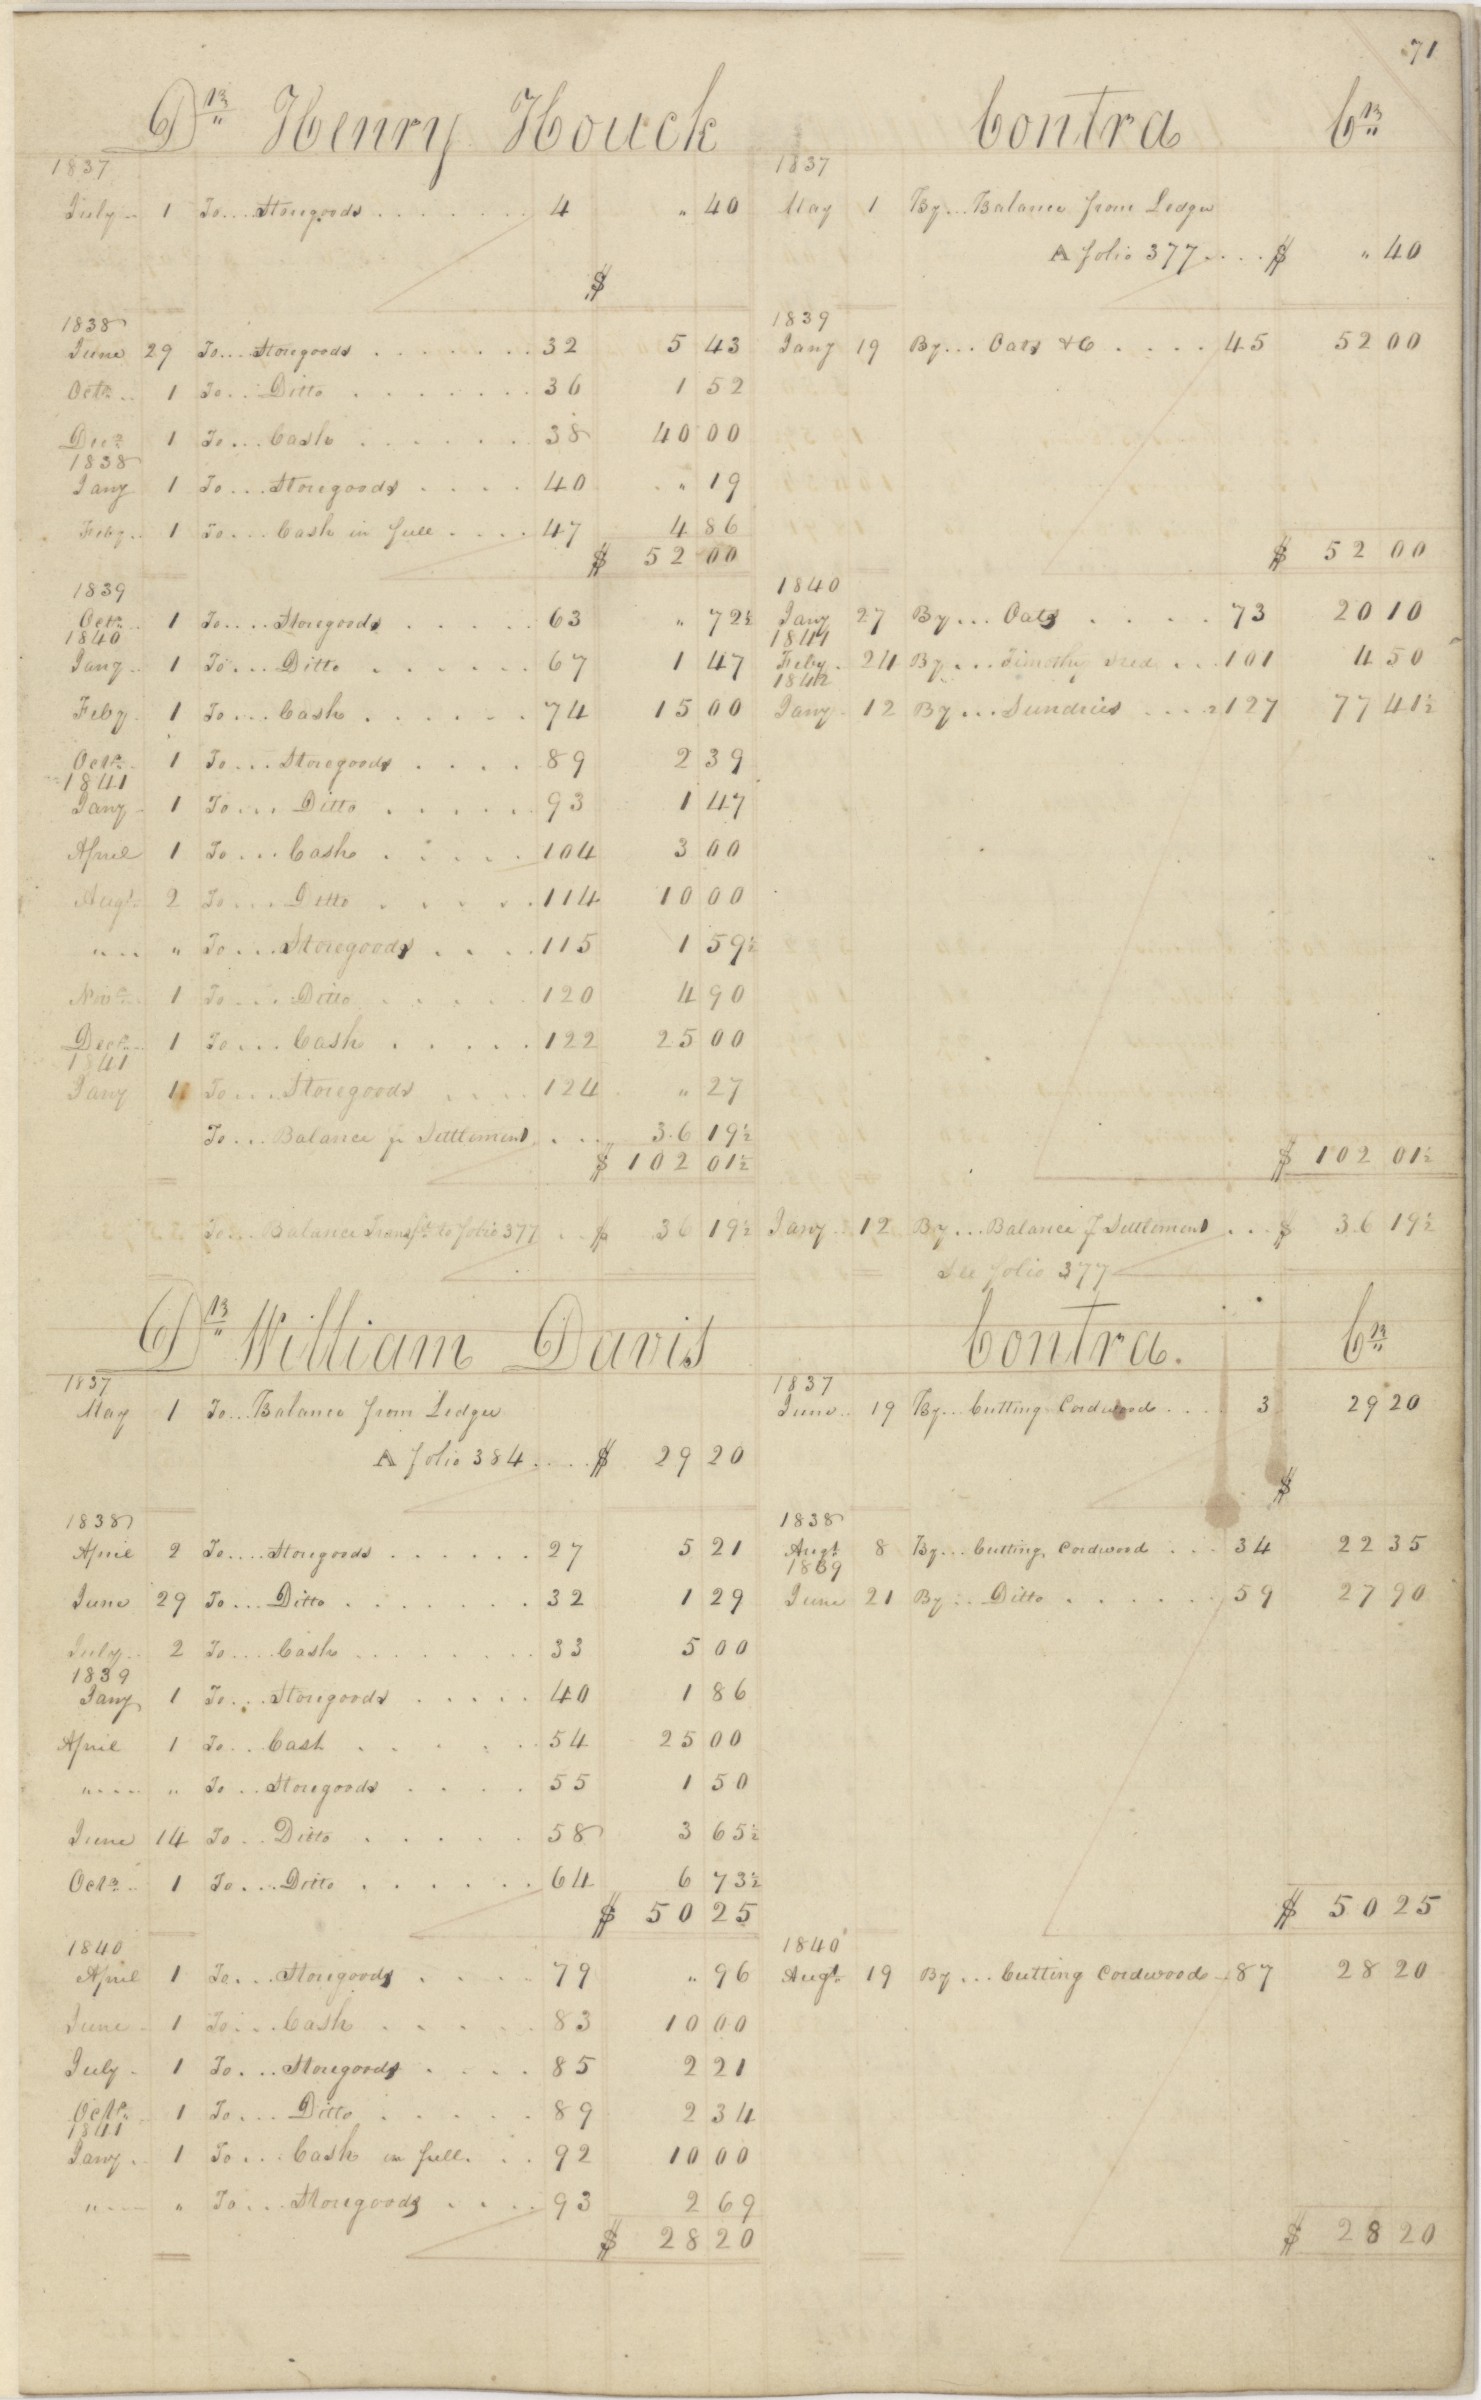 71
Dr Henry Houck Contra Cr
1837 1837
July 1 To... Storegoods 4 " 40 May 1 By... Balance from Ledger
A folio 377 $ " 40
$
1838 1839
June 29 To... Storegoods 32 5 43 Jany 19 By... Oats &c 45 52 00
Octr 1 To... Ditto 36 1 52
Decr 1 To... Cash 38 40 00
1838
Jany 1 To... Storegoods 40 " 19
Feby 1 To... Cash in full 47 4 86
$ 52 00 $ 52 00
1839 1840
Octr 1 To... Storegoods 63 " 72½ Jany 27 By... Oats 73 20 10
1840 1841
Jany 1 To... Ditto 67 1 47 Feby 24 By... Timothy seed 101 4 50
1842
Feby 1 To... Cash 74 15 00 Jany 12 By... Sundries 127 77 41½
Octr 1 To... Storegoods 89 2 39
1841
Jany 1 To... Ditto 93 1 47
April 1 To... Cash 104 3 00
Augt 2 To... Ditto 114 10 00
" " To... Storegoods 115 1 59½
Novr 1 To... Ditto 120 4 90
Decr 1 To... Cash 122 25 00
1841
Jany 1 To... Storegoods 124 " 27
To... Balance pr Settlement 36 19½
$ 102 01½ $ 102 01½
To... Balance Transfd to folio 377 $ 36 19½ Jany 12 By... Balance pr Settlement $ 36 19½
See folio 377
Dr William Davis Contra. Cr
1837 1837
May 1 To... Balance from Ledger June 19 By... Cutting Cordwood 3 29 20
A folio 384 $ 29 20
$
1838 1838
April 2 To... Storegoods 27 5 21 Augt 8 By... Cutting Cordwood 34 22 35
1839
June 29 To... Ditto 32 1 29 June 21 By... Ditto 59 27 90
July 2 To... Cash 33 5 00
1839
Jany 1 To... Storegoods 40 1 86
April 1 To... Cash 54 25 00
" " To... Storegoods 55 1 50
June 14 To... Ditto 58 3 65½
Octr 1 To... Ditto 64 6 73½
$ 50 25 $ 50 25
1840 1840
April 1 To... Storegoods 79 " 96 Augt 19 By... Cutting Cordwood 87 28 20
June 1 To... Cash 83 10 00
July 1 To... Storegoods 85 2 21
Octr 1 To... Ditto 89 2 34
1841
Jany 1 To... Cash in full 92 10 00
" " To... Storegoods 93 2 69
$ 28 20 $ 28 20